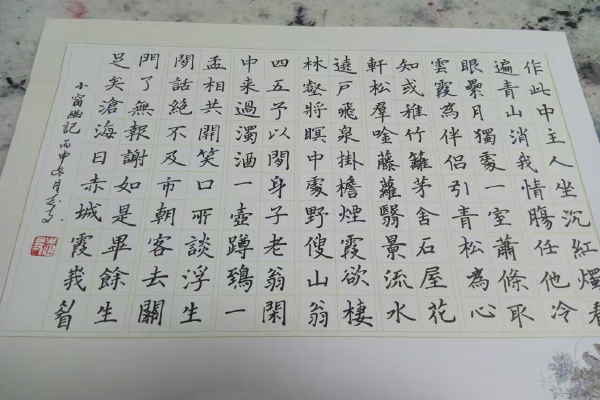 作此中主人坐沉紅燭看
遍青山消我情腸任他冷
眼纍月獨處一室蕭條取
雲霞為伴侶引青松為心
知或稚竹籬茅舍石屋花
軒松羣唫藤蘿翳景流水
遶戶飛泉掛檐煙霞欲棲
林壑將暝中處野傁山翁
四五予以閒身子老翁閑
中来過濁酒一壺蹲鴟一
盂相共開笑口所談浮生
閒話絕不及市朝客去關
門了無報謝如是畢餘生
足矣滄海日赤城霞峩眉
小窗幽記 丙申冬月